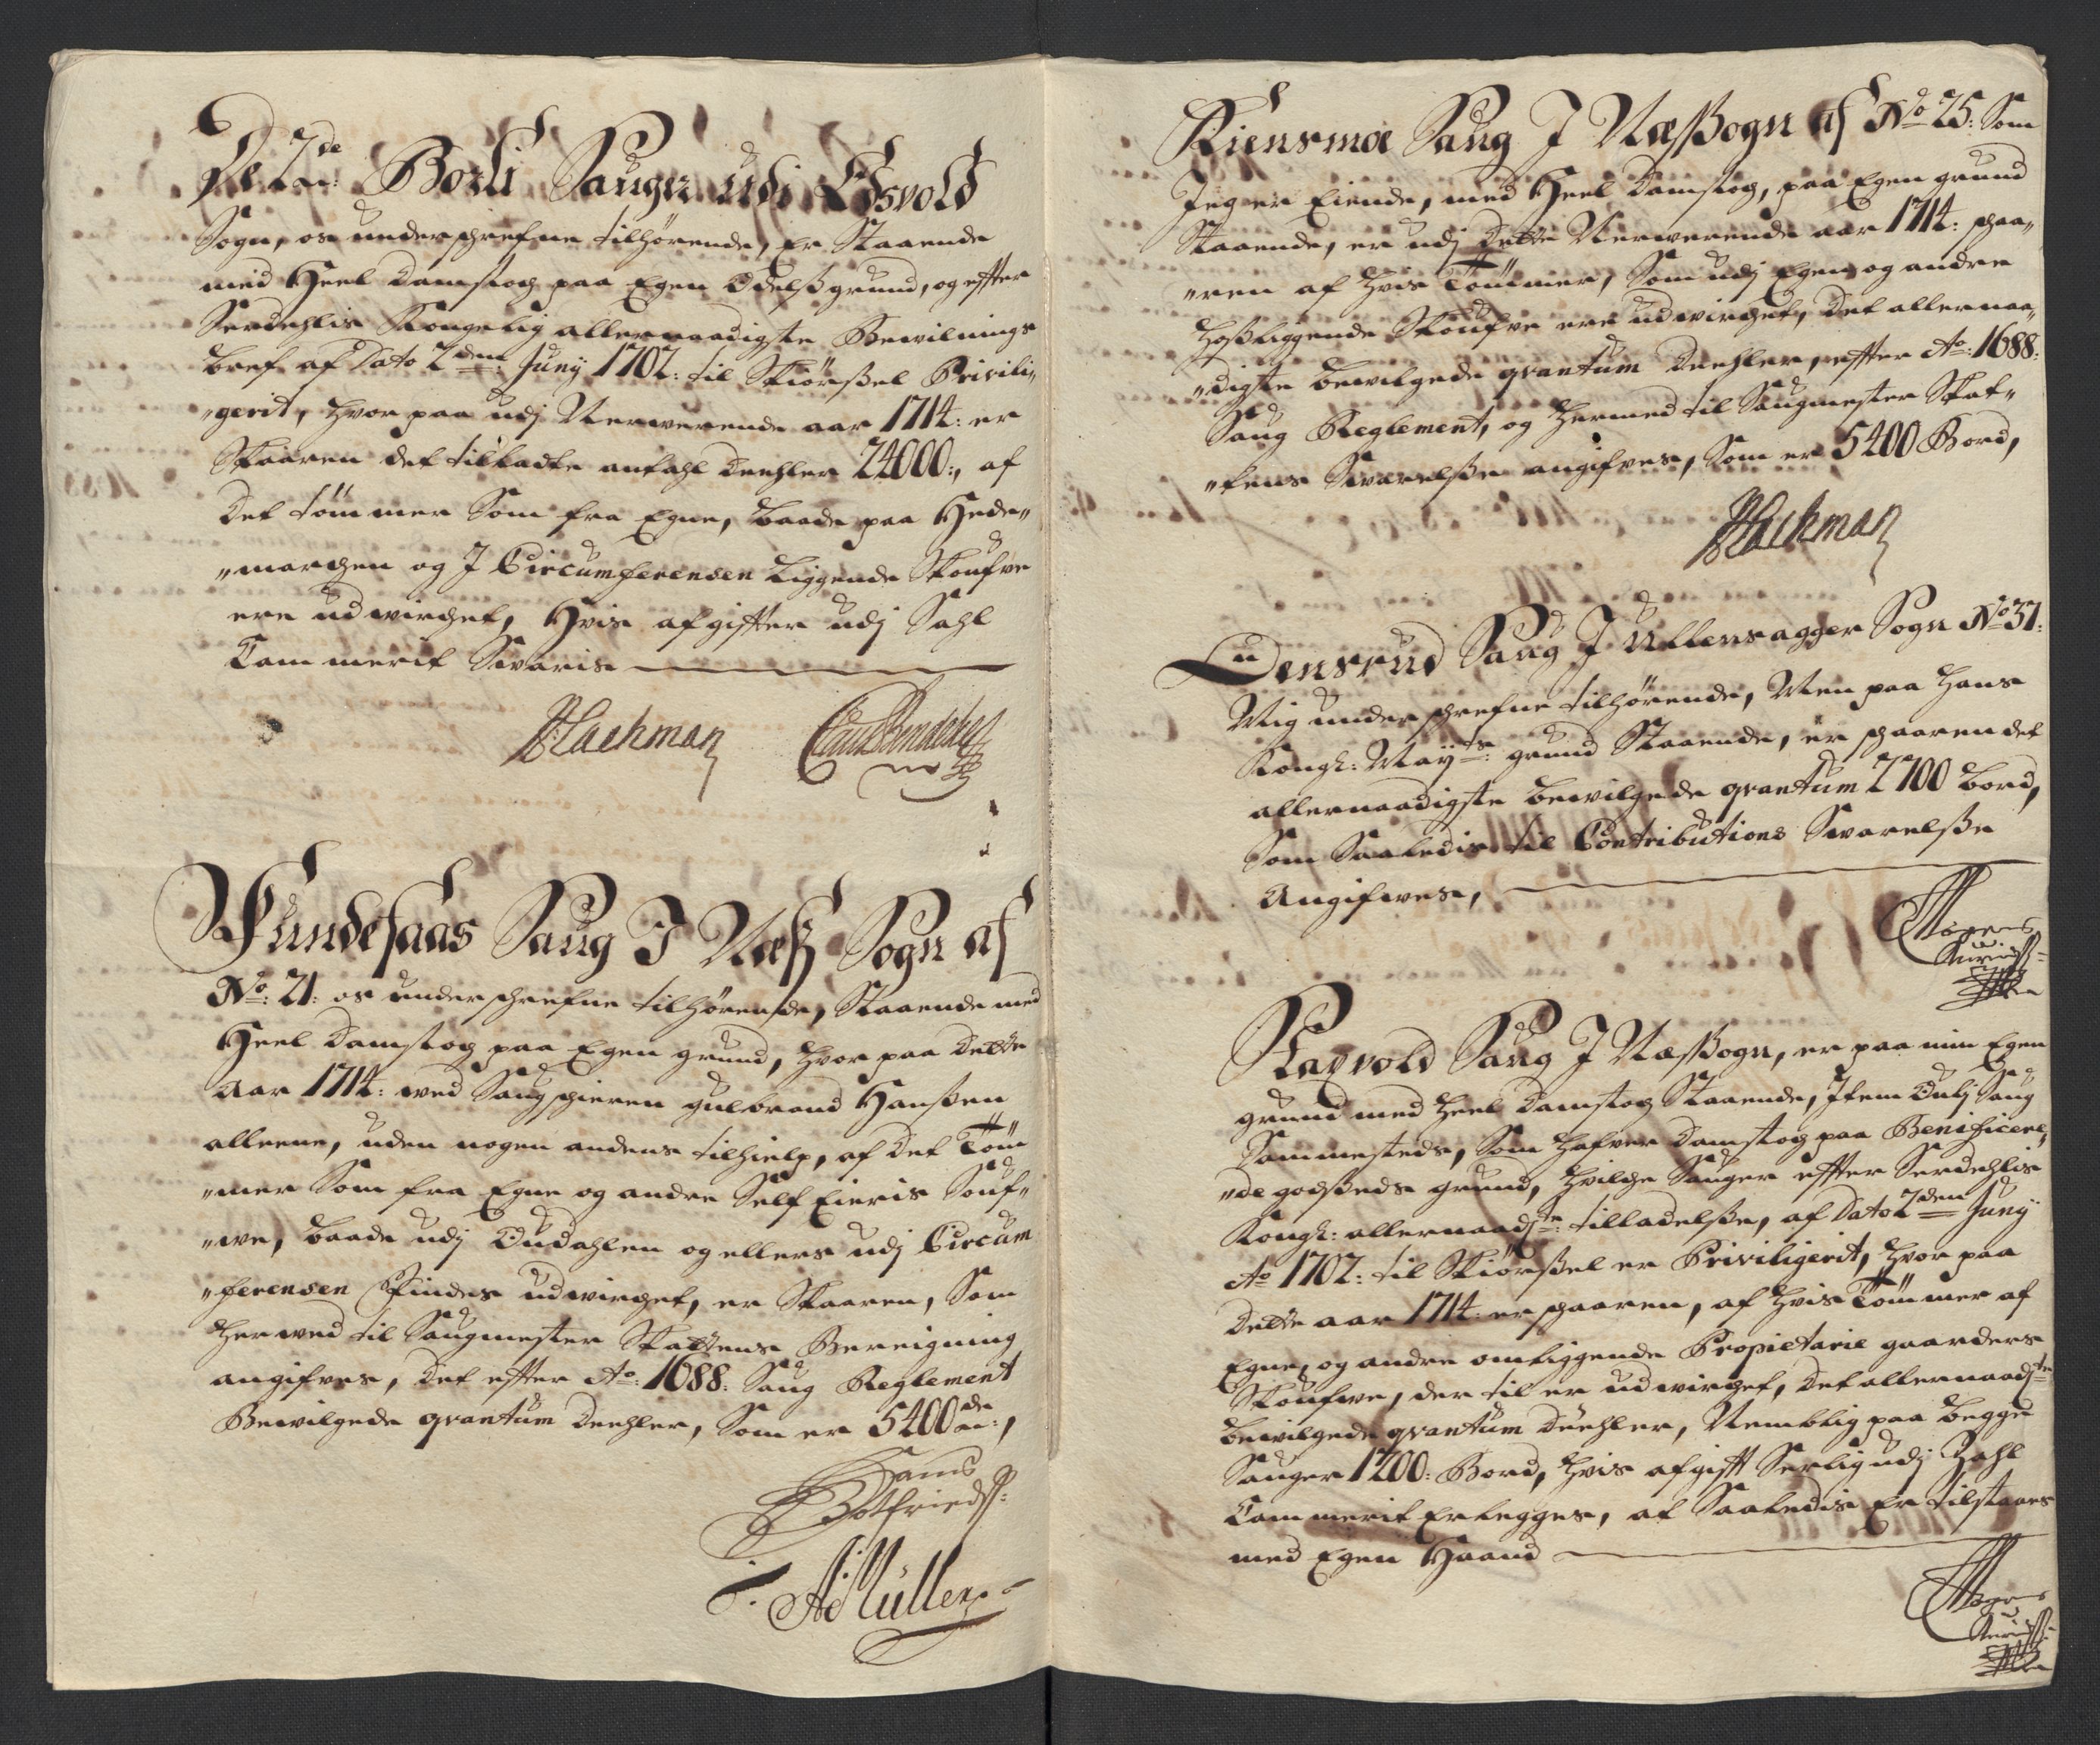 De 2de Borli Sauger udi Eidsvold
Sogn, os underschrefne tilhörende, Er Staaende
med Heel Damstog paa Egen Odelsgrund, og effter
Serdehlis Kongelig allernaadigste Bewilnings
bref af Dato 2den Juny 1702: til Skiörßel Privili„
„gerit, hvor paa udj Nerwerende aar 1714: er
Skaaren det tilladte antahl Deehler 24000:, af
Det tömmer Som fra Egne, baade paa Hede„
„marchen og J Circumferencen Liggende Skoufve
ere udwirchet, Hvis afgiffter udj Zahl
Cammerit Svaris
HLachman
Fundesaas Saug J Næß Sogn af
No: 21: os underschrefne tilhörende, Staaende med
Heel Damstog paa Egen grund, hvor paa Dette
Aar 1714: ved Saugschieren Gulbrand Hanßen
alleene, uden nogen andens tilhielp, af Det Töm
„mer Som fra Egne og andre Self Eieris Souf„
„we, baade udj Oudahlen og ellers udj Circum
„ferencen Findes udwirchet, er Skaaren, Som
herwed til Saugmester Skattens Bereigning
angifves, Det effter Ao: 1688: Saug Reglement
Bewilgede qvantum Deehler, Som er 5400 de:,
Hans
Gotfriedß:
AMüller
Kiensmoe Saug J Næßogn af No 25: Som
Jeg er Eiende, med Heel Damstog, paa Egen grund
Staaende, er udj Dette Nerwerende aar 1714: schaa„
„ren af hvis Tömmer, Som udj Egen og andre
hoßliggende Skoufve ere udwirchet, Det allernaa„
„digste bewilgede qvantum Deehler, effter Ao: 1688:
Saug Reglement, og hermed til Saugmester Skat„
„tens Swarelße angifves, Som er 5400 Bord,
HLachman
Densrud Saug J Ullensagger Sogn No 31:
Mig underschrefne tilhörende, Men paa Hans
Kongl: Mayts: grund Staaende, er schaaren det
allernaadigste bewilgede qvantum 2700 bord,
Som Saaledis til Contributions Swarelße
Angifwes,
Mogens
Lauridß:
Raqvold Saug J Næßogn, er paa min Egen
grund med heel Damstog Staaende, Jtem Dulj Saug
Sammesteds, Som hafver Damstog paa Benificere„
„de godßeds grund, hvilche Sauger effter Serdehlis
Kongl: allernaadste: tilladelße, af Dato 2den Juny
Ao 1702: til Skiörßel er Priviligerit, hvor paa
Dette aar 1714: er schaaren, af hvis Tömmer af
Egne, og andre omliggende Propietarie gaarders
Skoufwe, der til er udwirchet, Det allernaadste
bewilgede qvantum Deehler, Nemblig paa begge
Sauger 1200: Bord, hvis afgifft Serlig udj Zahl
Cammerit Erlegges, at Saaledis Er tilstaaes
med Egen Haand
Mogens
Lauridß: